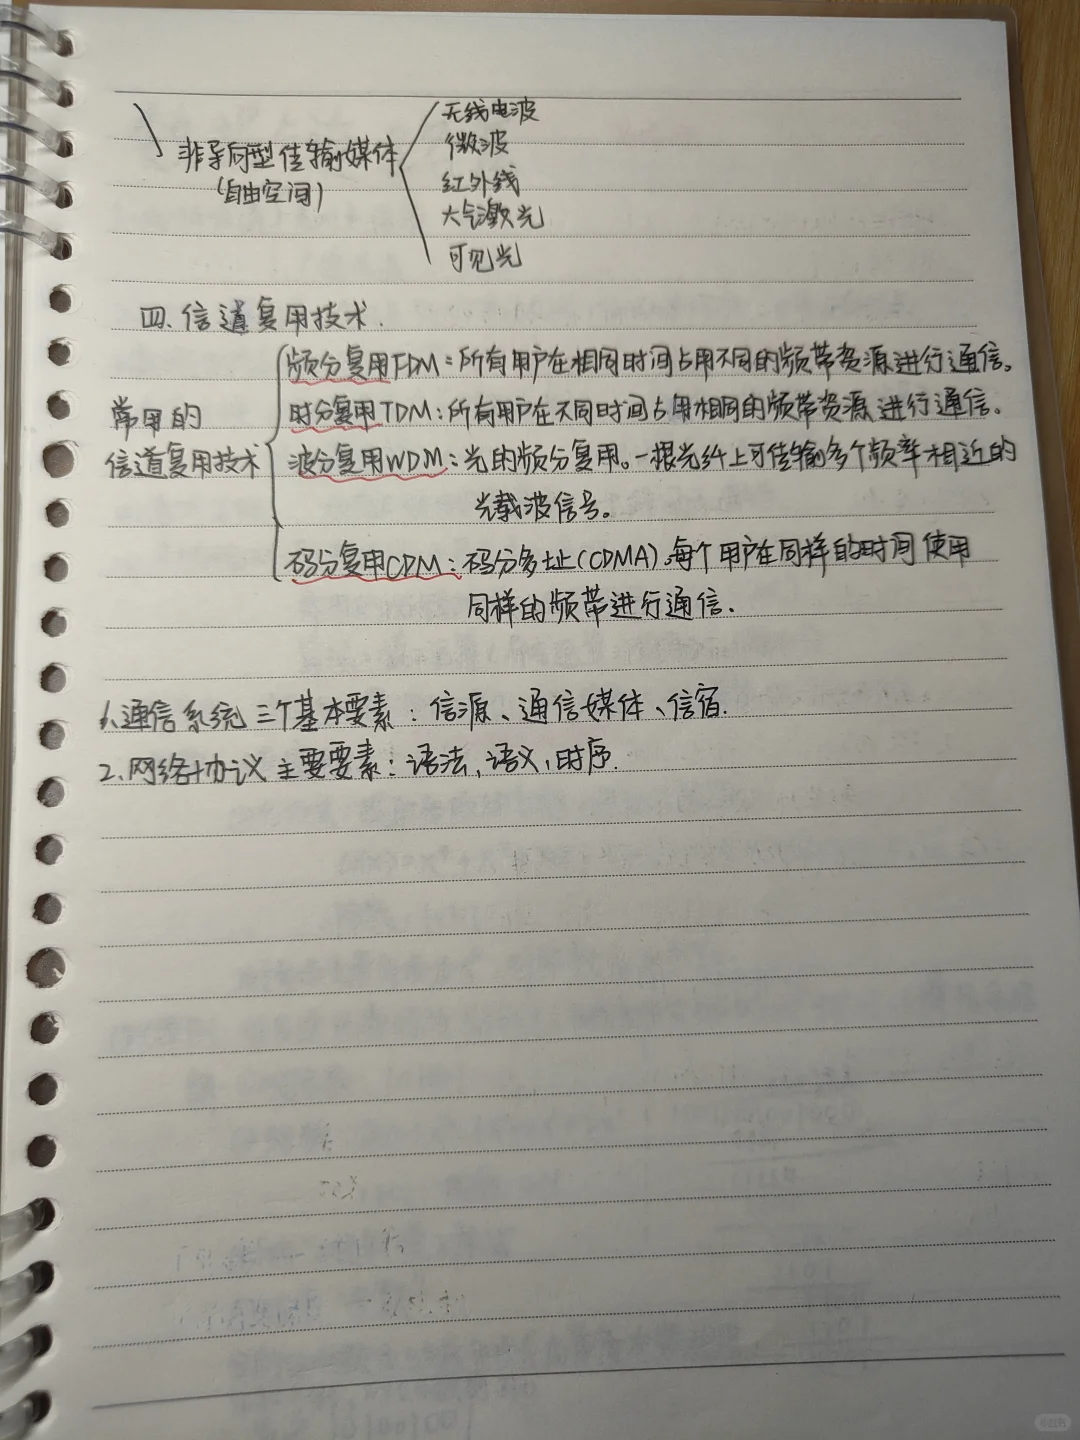 非导向型传输媒体
(自由空间)
无线电波
微波
红外线
大气激光
可见光
四、信道复用技术.
常用的
信道复用技术
频分复用FDM:所有用户在相同时间占用不同的频带资源进行通信。
时分复用TDM:所有用户在不同时间占用相同的频带资源进行通信。
波分复用WDM:光的频分复用。一根光纤上可传输多个频率相近的
光载波信号。
码分复用CDM:码分多址(CDMA),每个用户在同样的时间使用
同样的频带进行通信.
1、通信系统三个基本要素:信源、通信媒体、信宿.
2、网络协议主要要素:语法,语义,时序.
小红书